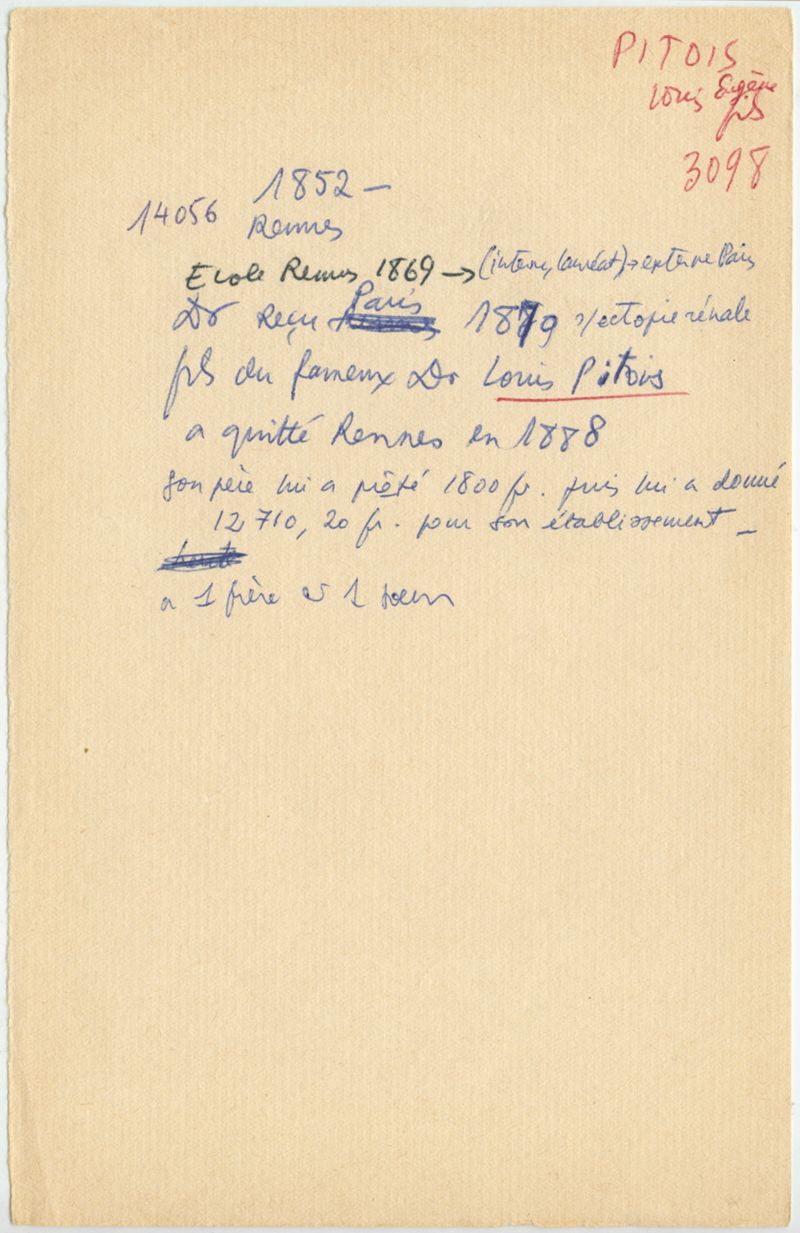 PITOIS
Louis Eugène
fils
3098
1852 –
14056 Rennes
Ecole Rennes 1869 → (interne, lauréat) → externe Paris
Dr reçu Paris 1879 s/ectopie rénale
fils du fameux Dr Louis Pitois
a quitté Rennes en 1888
son père lui a prêté 1800 fr. puis lui a donné
12 710, 20 fr. pour son établissement –
a 1 frère et 1 soeur